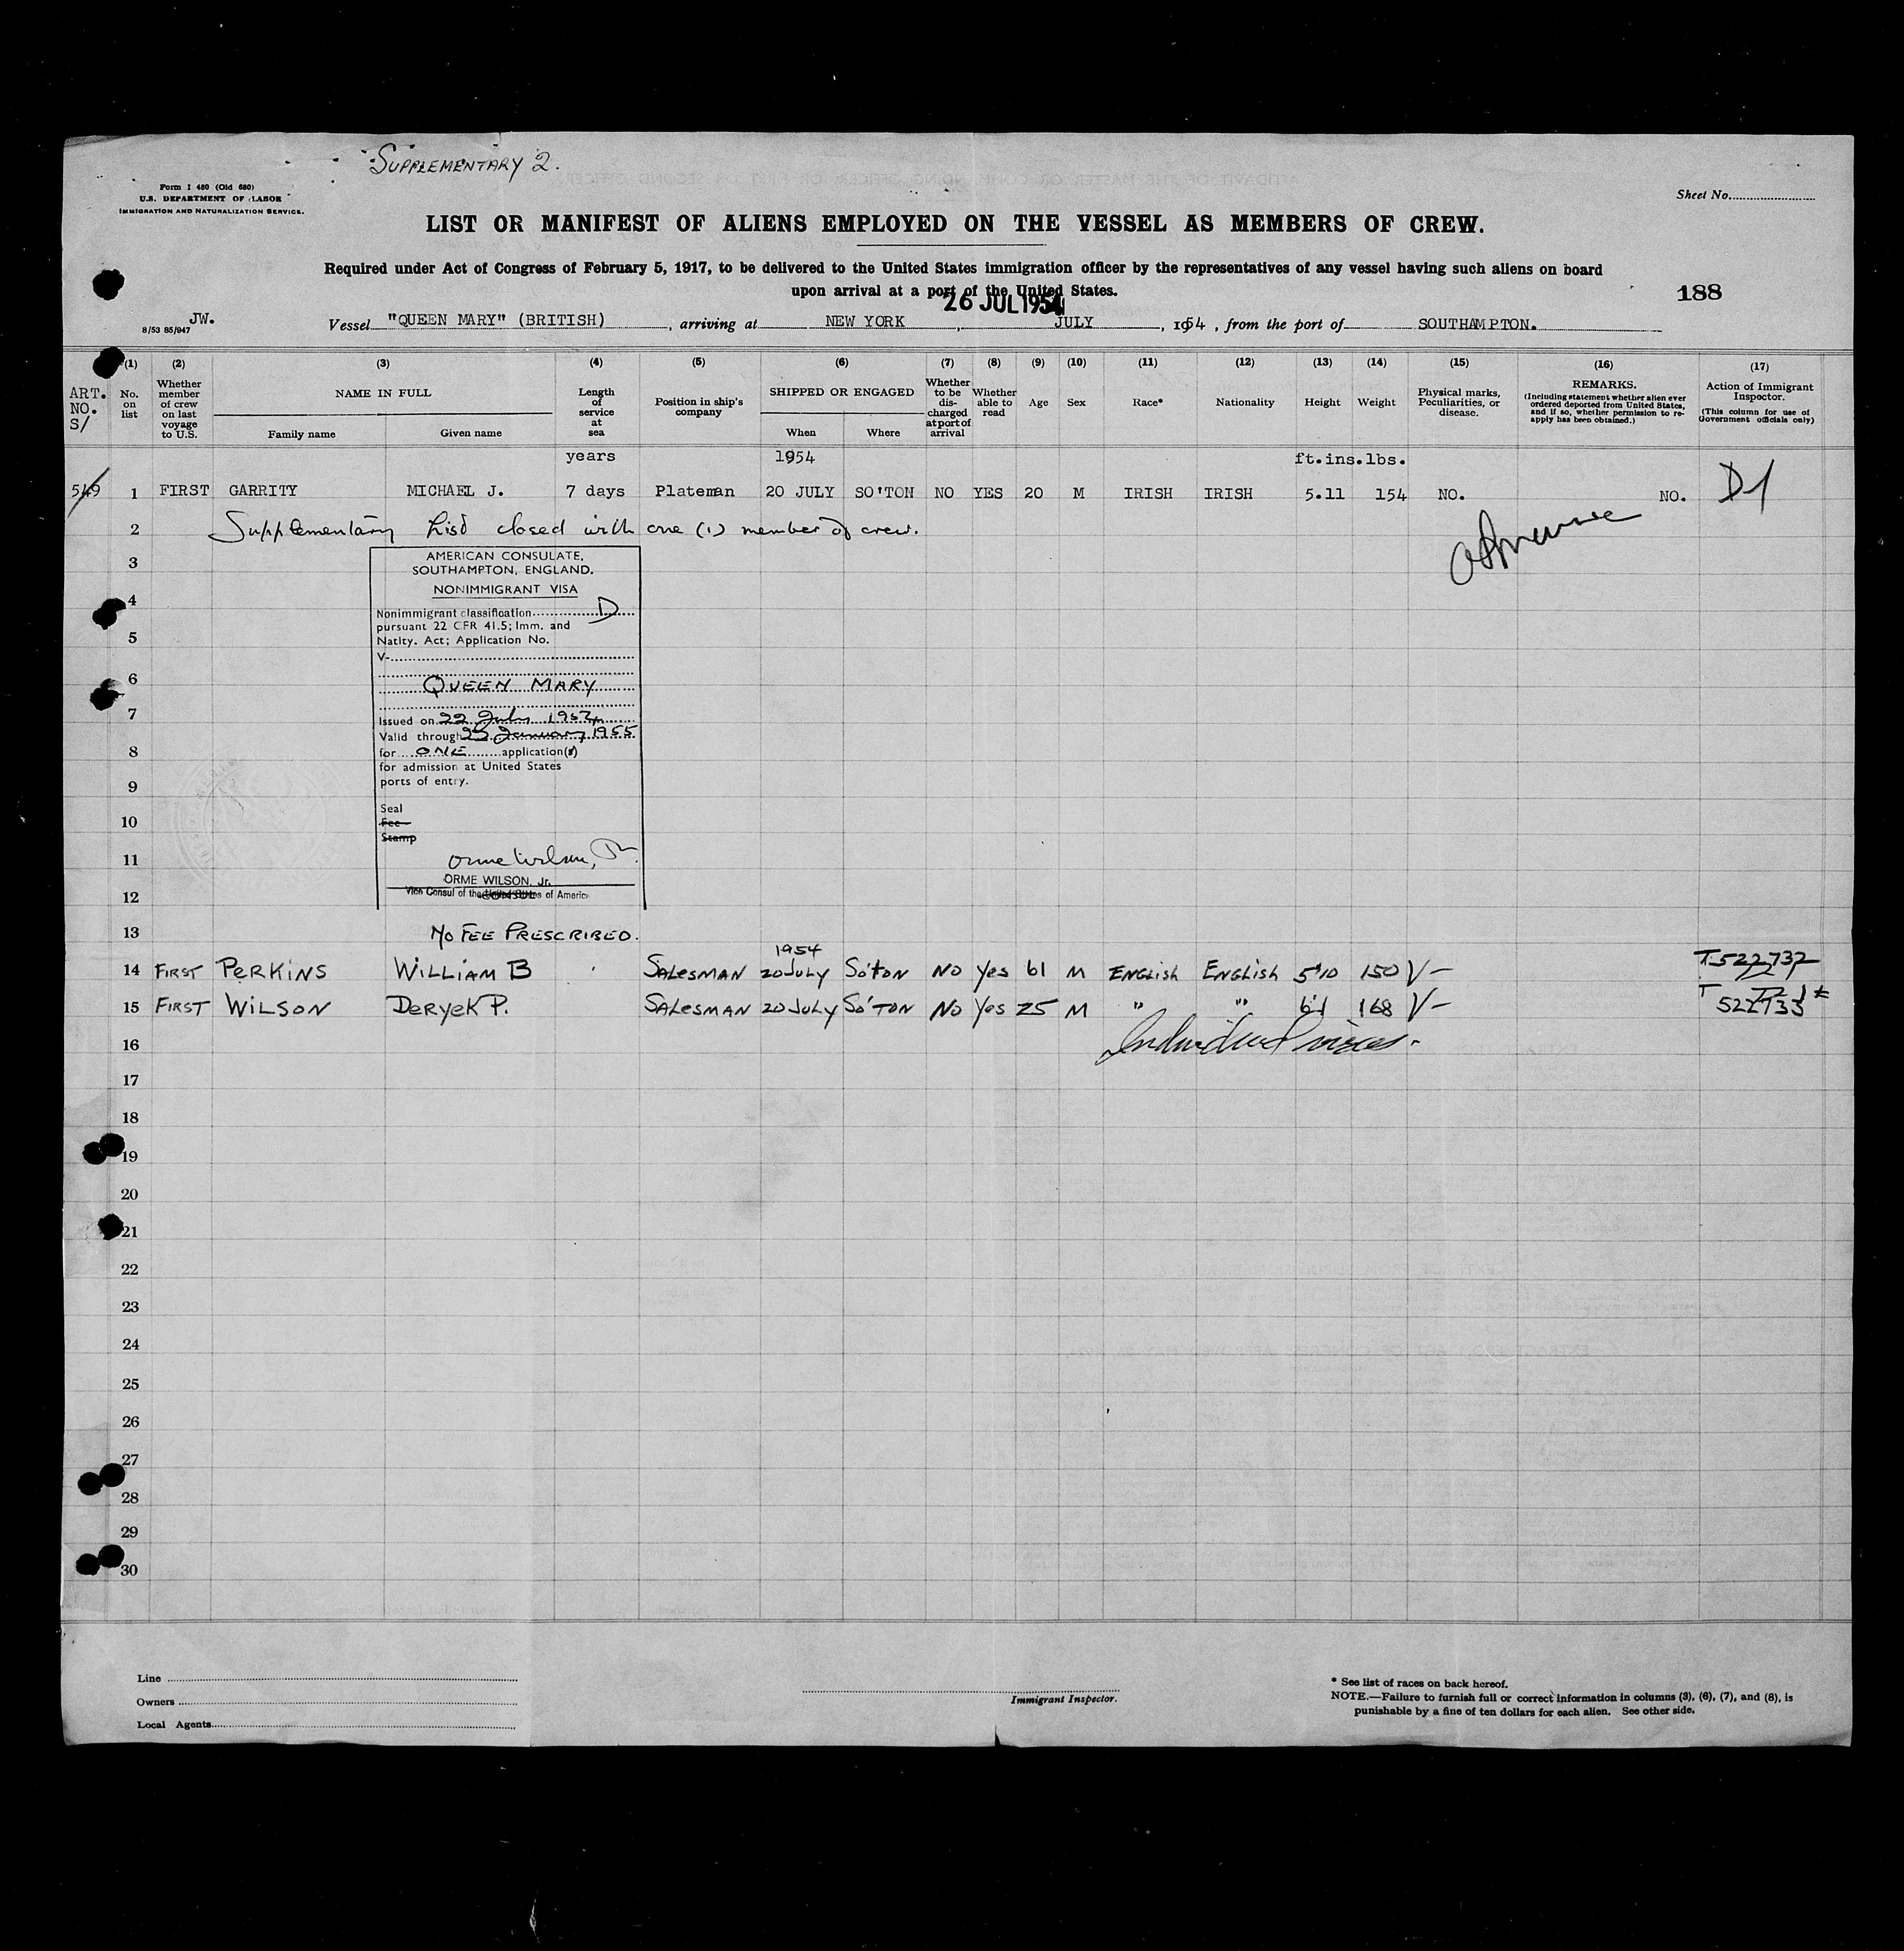 SUPPLEMENTARY 2.
Form I 480 (Old 680)
U.S. DEPARTMENT OF LABOR
IMMIGRATION AND NATURALIZATION SERVICE.
Sheet No.
LIST OR MANIFEST OF ALIENS EMPLOYED ON THE VESSEL AS MEMBERS OF CREW.
Required under Act of Congress of February 5, 1917, to be delivered to the United States immigration officer by the representatives of any vessel having such aliens on board
upon arrival at a port of the United States.
188
26 JUL 1954
JW.
8/53 85/947
Vessel "QUEEN MARY" (BRITISH), arriving at NEW YORK, JULY, 1954, from the port of SOUTHAMPTON.
(1) (2) (3) (4) (5) (6) (7) (8) (9) (10) (11) (12) (13) (14) (15) (16) (17)
ART. NO. S/
No. on list
Whether member of crew on last voyage to U.S.
NAME IN FULL
Family name
Given name
Length of service at sea
Position in ship's company
SHIPPED OR ENGAGED
When
Where
Whether to be discharged at port of arrival
Whether able to read
Age
Sex
Race*
Nationality
Height
Weight
Physical marks, Peculiarities, or disease.
REMARKS.
(Including statement whether alien ever ordered deported from United States, and if so, whether permission to re-apply has been obtained.)
Action of Immigrant Inspector.
(This column for use of Government officials only)
years 1954 ft.ins.lbs.
549 1 FIRST GARRITY MICHAEL J. 7 days Plateman 20 JULY SO'TON NO YES 20 M IRISH IRISH 5.11 154 NO. NO. D1
2 Supplementary List closed with one (1) member of crew.
3
4
5
6
7
8
9
10
11
12
13
AMERICAN CONSULATE,
SOUTHAMPTON, ENGLAND.
NONIMMIGRANT VISA
Nonimmigrant classification D
pursuant 22 CFR 41.5; Imm. and
Natity. Act; Application No.
V-
QUEEN MARY
Issued on 22 July 1954
Valid through 21 January 1955
for ONE application(s)
for admission at United States
ports of entry.
Seal
Fee
Stamp
Orme Wilson, Jr.
ORME WILSON, Jr.
Vice Consul of the United States of America
NO FEE PRESCRIBED.
1954
14 FIRST PERKINS WILLIAM B SALESMAN 20 JULY SO'TON NO Yes 61 M ENGLISH ENGLISH 5'10 150 V- T522732
15 FIRST WILSON DERYEK P. SALESMAN 20 JULY SO'TON NO Yes 25 M " " 6'1 168 V- T 522733
16 Individual visas.
17
18
19
20
21
22
23
24
25
26
27
28
29
30
Line
Owners
Local Agents
Immigrant Inspector.
* See list of races on back hereof.
NOTE.—Failure to furnish full or correct information in columns (3), (6), (7), and (8), is
punishable by a fine of ten dollars for each alien. See other side.